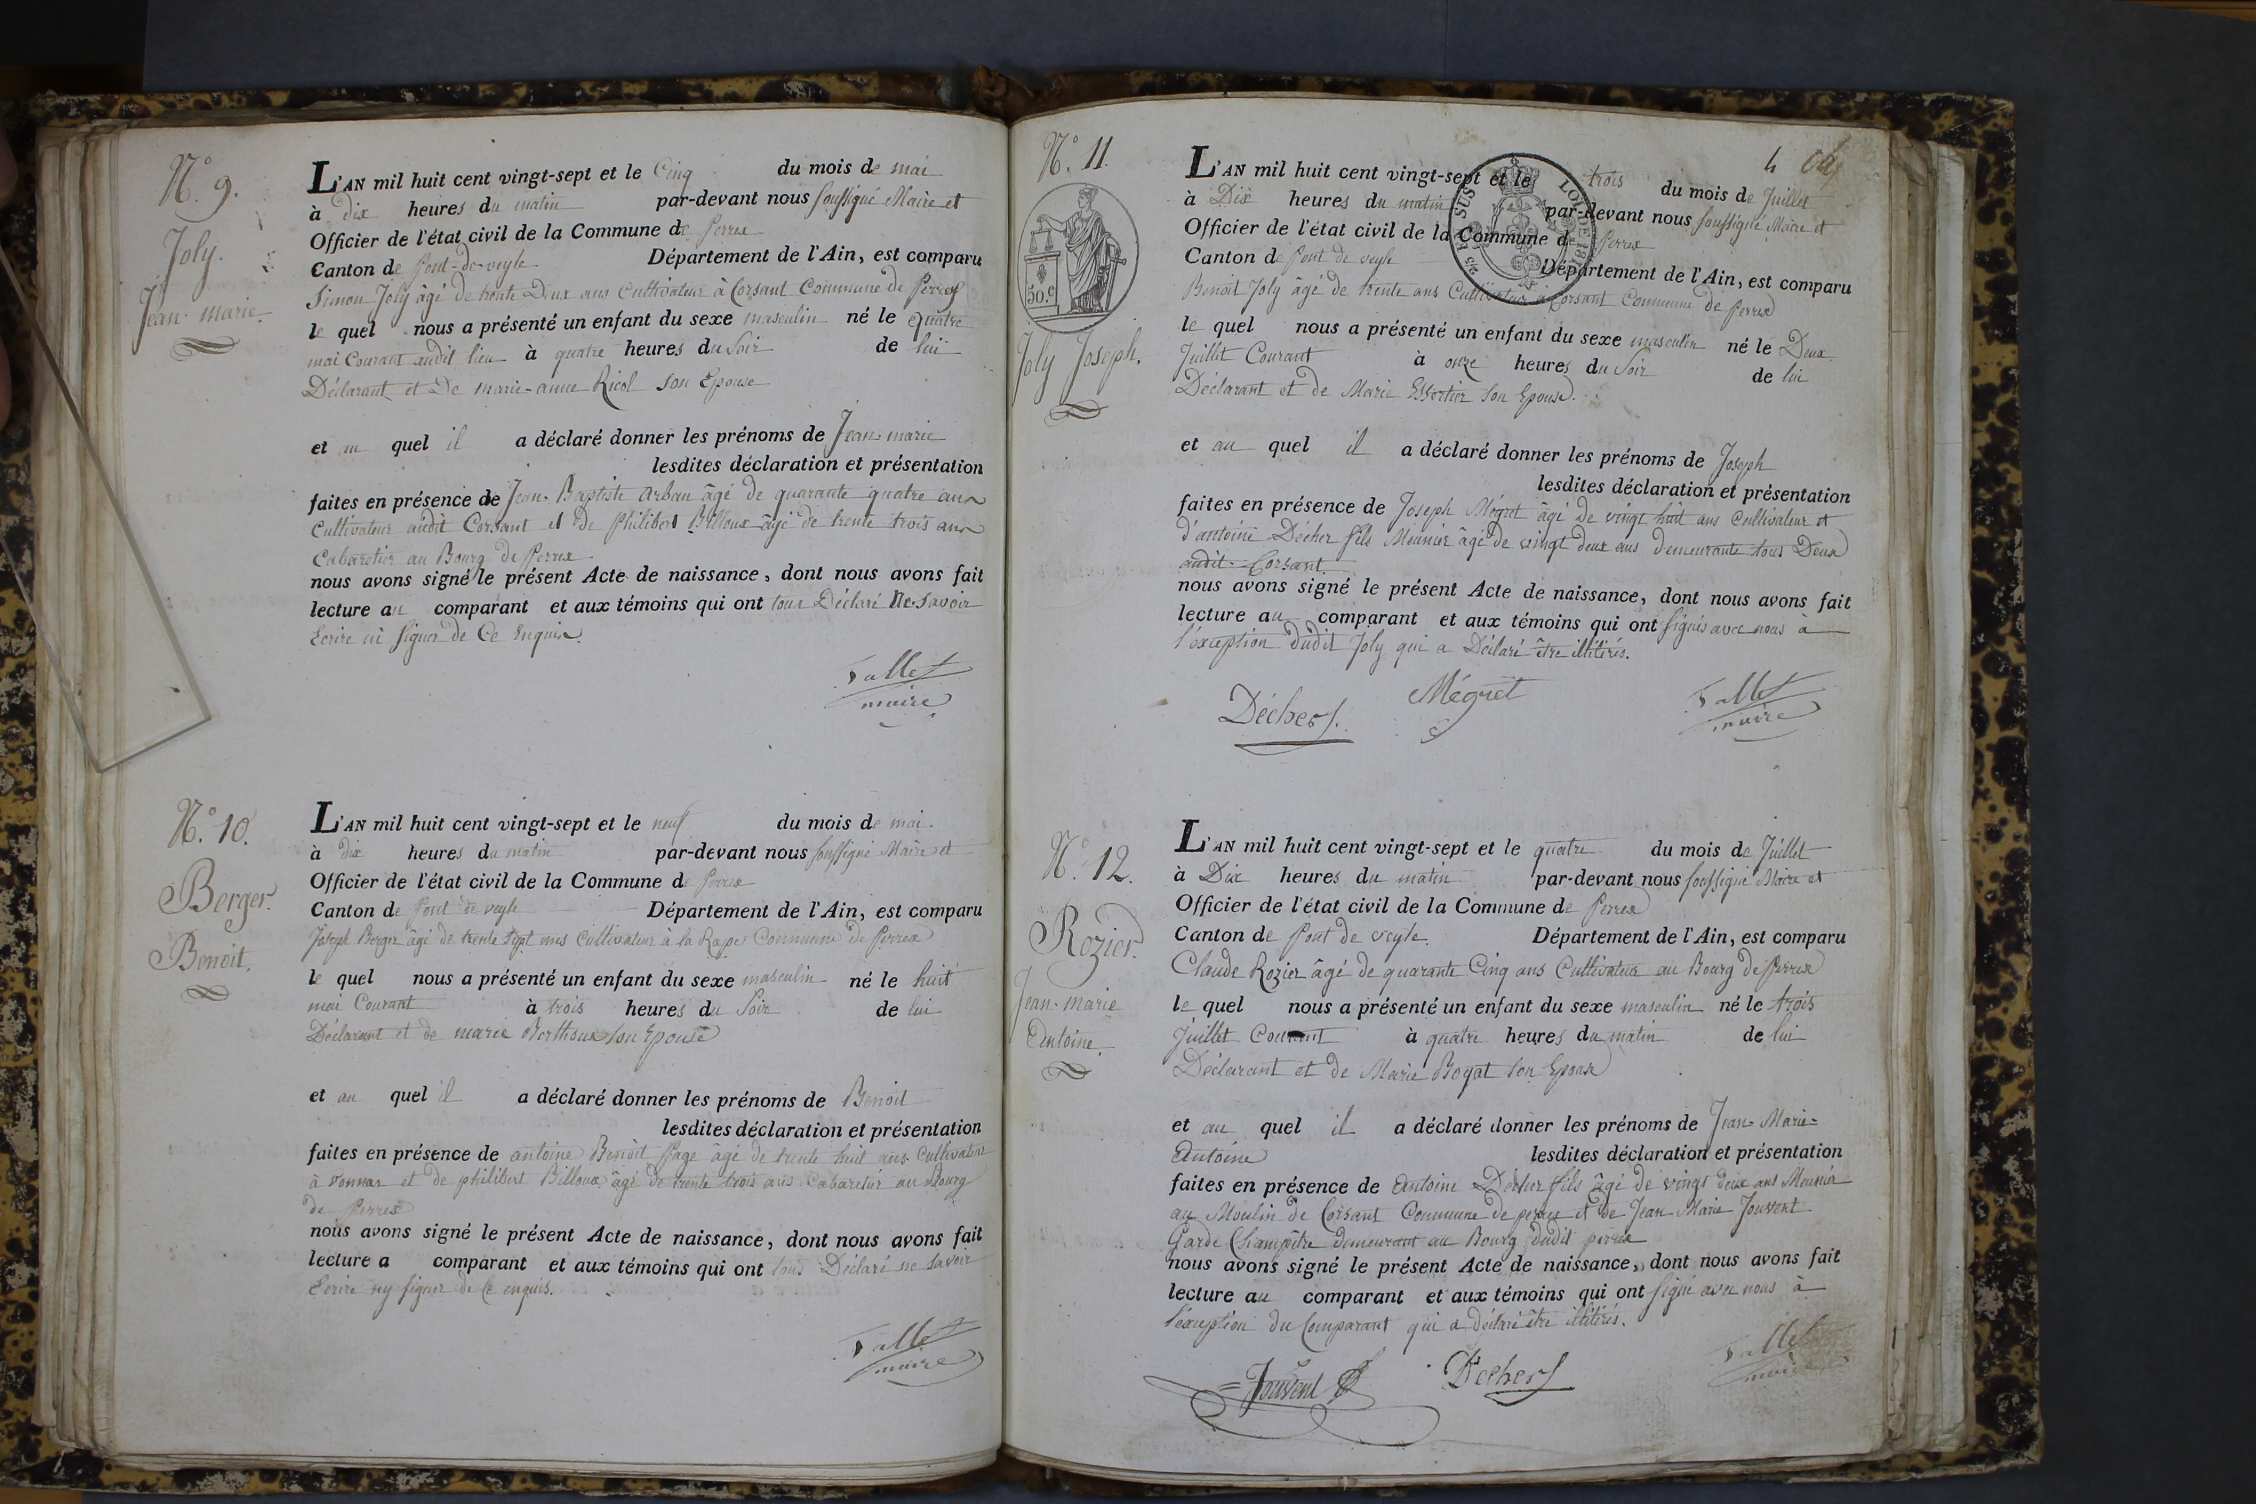 N.º 9.
Joly.
Jean-marie.
L'AN mil huit cent vingt-sept et le Cinq du mois de mai
à dix heures du matin par-devant nous soussigné Maire et
Officier de l'état civil de la Commune de Perrex
Canton de Pont-de-veyle Département de l'Ain, est comparu
Simon Joly âgé de trente Deux ans Cultivateur à Corsant Commune de Perrex
le quel nous a présenté un enfant du sexe masculin né le quatre
mai Courant audit lieu à quatre heures du Soir de lui
Déclarant et De marie-anne Ricol son Epouse
et au quel il a déclaré donner les prénoms de Jean-marie
lesdites déclaration et présentation
faites en présence de Jean-Baptiste Arban âgé de quarante quatre ans
Cultivateur audit Corsant et de Philibert Billoux âgé de trente trois ans
Cabaretier au Bourg de Perrex
nous avons signé le présent Acte de naissance, dont nous avons fait
lecture au comparant et aux témoins qui ont tous Déclaré Ne savoir
Ecrire ni signer de Ce Enquis.
Vallet
maire
N.º 10.
Berger.
Benoit.
L'AN mil huit cent vingt-sept et le neuf du mois de mai.
à dix heures du matin par-devant nous soussigné Maire et
Officier de l'état civil de la Commune de Perrex
Canton de Pont de veyle Département de l'Ain, est comparu
Joseph Berger âgé de trente sept ans Cultivateur à la Rape Commune de Perrex
le quel nous a présenté un enfant du sexe masculin né le huit
mai Courant à trois heures du Soir de lui
Déclarant et de marie Berthoux son Epouse
et au quel il a déclaré donner les prénoms de Benoit
lesdites déclaration et présentation
faites en présence de antoine Benoit Page âgé de trente huit ans Cultivateur
à Vonnas et de philibert Billoux âgé de trente trois ans Cabaretier au Bourg
de Perrex
nous avons signé le présent Acte de naissance, dont nous avons fait
lecture a comparant et aux témoins qui ont tous Déclaré ne savoir
Ecrire ny signer de Ce enquis.
Vallet
maire
4
N.º 11.
50.c
Joly Joseph.
L'AN mil huit cent vingt-sept et le trois du mois de Juillet
à Dix heures du matin par-devant nous soussigné Maire et
Officier de l'état civil de la Commune de Perrex
Canton de Pont de veyle Département de l'Ain, est comparu
Benoit Joly âgé de trente ans Cultivateur à Corsant Commune de Perrex
le quel nous a présenté un enfant du sexe masculin né le Deux
Juillet Courant à onze heures du Soir de lui
Déclarant et de Marie Essertier son Epouse.
et au quel il a déclaré donner les prénoms de Joseph
lesdites déclaration et présentation
faites en présence de Joseph Mégret âgé de vingt huit ans Cultivateur et
d'antoine Décher fils Meunier âgé de vingt deux ans demeurants tous Deux
audit Corsant.
nous avons signé le présent Acte de naissance, dont nous avons fait
lecture au comparant et aux témoins qui ont signés avec nous à
l'éxception dudit Joly qui a Déclaré être illitérés.
Décher f. Mégret Vallet
maire
N.º 12.
Rozier.
Jean-marie
Antoine.
L'AN mil huit cent vingt-sept et le quatre du mois de Juillet
à Dix heures du matin par-devant nous soussigné Maire et
Officier de l'état civil de la Commune de Perrex
Canton de Pont de veyle. Département de l'Ain, est comparu
Claude Rozier âgé de quarante Cinq ans Cultivateur au Bourg de Perrex
le quel nous a présenté un enfant du sexe masculin né le trois
Juillet Courant à quatre heures du matin de lui
Déclarant et de Marie Boyat son Epouse
et au quel il a déclaré donner les prénoms de Jean-Marie-
Antoine lesdites déclaration et présentation
faites en présence de Antoine Décher fils âgé de vingt deux ans Meunier
au Moulin de Corsant Commune de perrex et de Jean Marie Jouvent
Garde Champêtre demeurant au Bourg dudit perrex
nous avons signé le présent Acte de naissance, dont nous avons fait
lecture au comparant et aux témoins qui ont signé avec nous à
l'éxception du Comparant qui a déclaré être illitérés.
Jouvent Décher f Vallet
maire